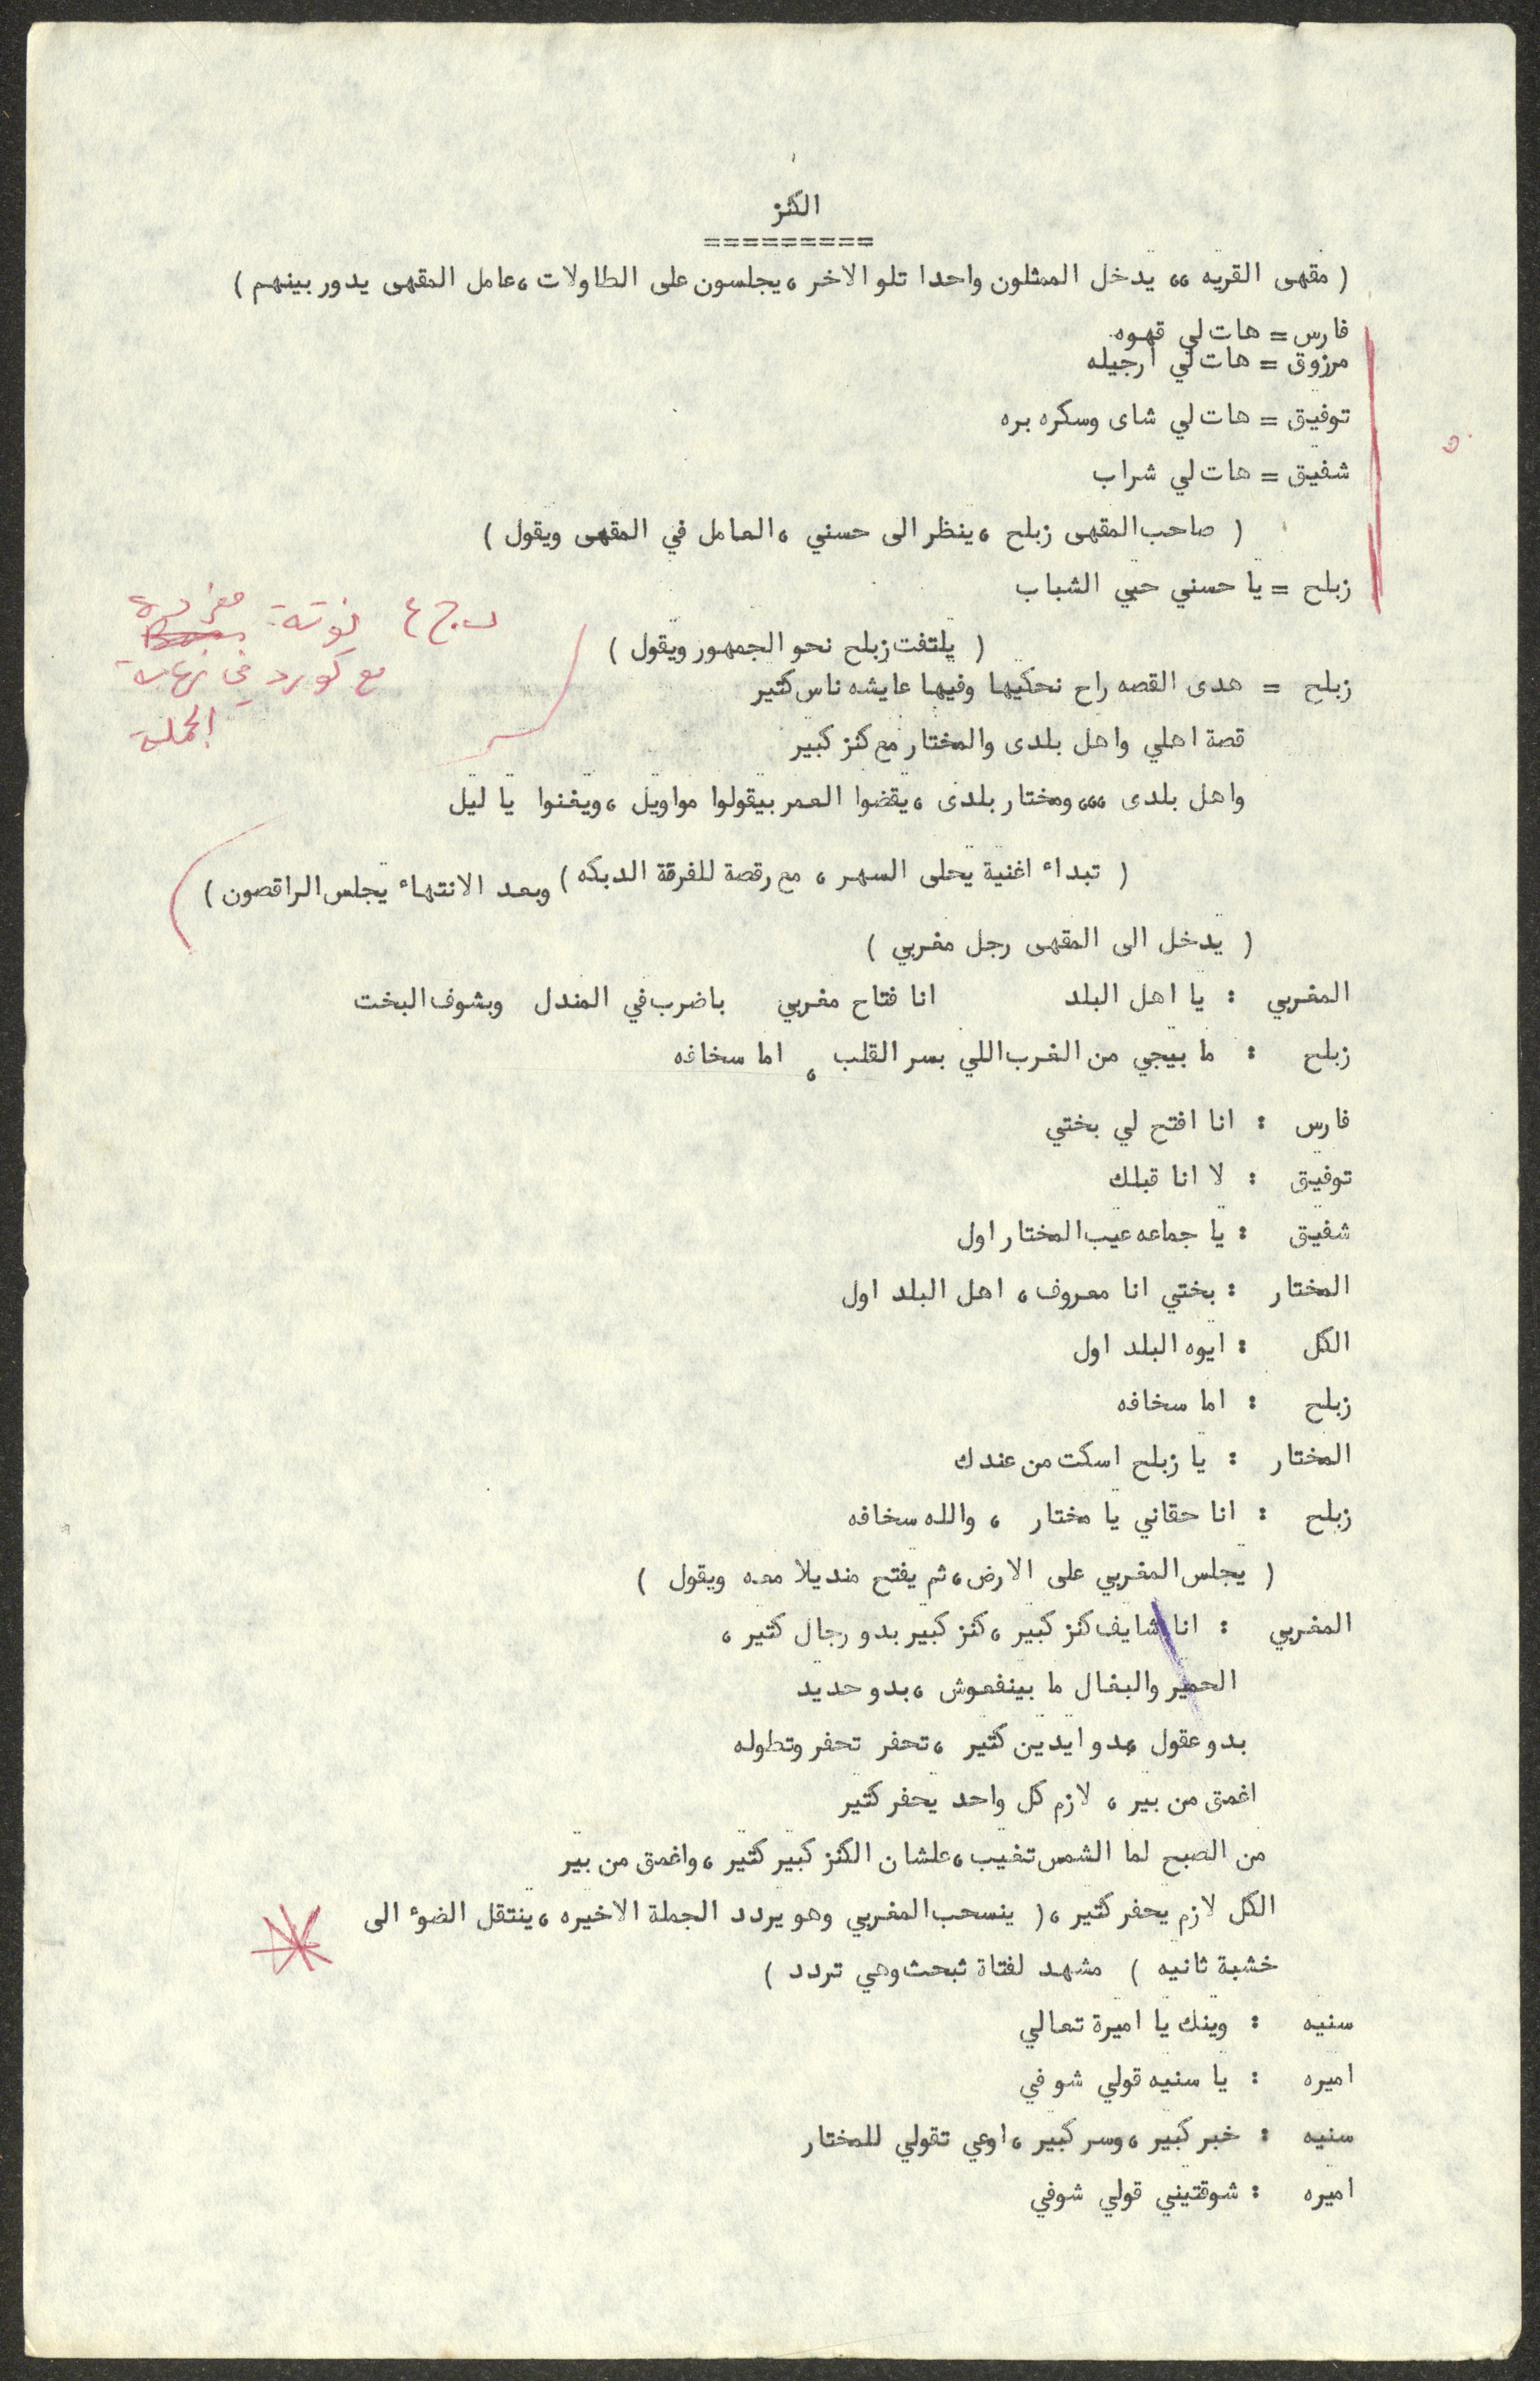 الكنز
=========
( مقهى القريه ،، يدخل الممثلون واحدا تلو الاخر ، يجلسون على الطاولات ، عامل المقهى يدور بينهم )
فارس = هات لي قهوه
مرزوق = هات لي ارجيله
توفيق = هات لي شاى وسكره بره
شفيق = هات لي شراب
( صاحب المقهى زبلح ، ينظر الى حسني ، العامل في المقهى ويقول )
زبلح = يا حسني حيي الشباب
نوتة مفردة
مع كورد في نهاية
الجملة
( يلتفت زبلح نحو الجمهور ويقول )
زبلح = هدى القصه راح نحكيها وفيها عايشه ناس كتير
قصة اهلي واهل بلدى والمختار مع كنز كبير
واهل بلدى ،،، ومختار بلدى ، يقضوا العمر بيقولوا مواويل ، ويغنوا يا ليل
( تبداء اغنية يحلى السهر ، مع رقصة للفرقة الدبكه ) وبعد الانتهاء يجلس الراقصون )
( يدخل الى المقهى رجل مغربي )
المغربي : يا اهل البلد انا فتاح مغربي باضرب في المندل وبشوف البخت
زبلح : ما بيجي من الغرب اللي بسر القلب ، اما سخافه
فارس : انا افتح لي بختي
توفيق : لا انا قبلك
شفيق : يا جماعه عيب المختار اول
المختار : بختي انا معروف ، اهل البلد اول
الكل : ايوه البلد اول
زبلح : اما سخافه
المختار : يا زبلح اسكت من عندك
زبلح : انا حقاني يا مختار ، والله سخافه
( يجلس المغربي على الارض ، ثم يفتح منديلا معه ويقول )
المغربي : انا شايف كنز كبير ، كنز كبير بدو رجال كتير ،
الحمير والبغال ما بينفعوش ، بدو حديد
بدو عقول بدو ايدين كتير ، تحفر تحفر وتطوله
اغمق من بير ، لازم كل واحد يحفر كتير
من الصبح لما الشمس تغيب ، علشان الكنز كبير كتير ، واغمق من بير
الكل لازم يحفر كتير ، ( ينسحب المغربي وهو يردد الجملة الاخيره ، ينتقل الضوء الى
خشبة ثانيه ) مشهد لفتاة تبحث وهي تردد )
سنيه : وينك يا اميرة تعالي
اميره : يا سنيه قولي شو في
سنيه : خبر كبير ، وسر كبير ، اوعي تقولي للمختار
اميره : شوقتيني قولي شوفي